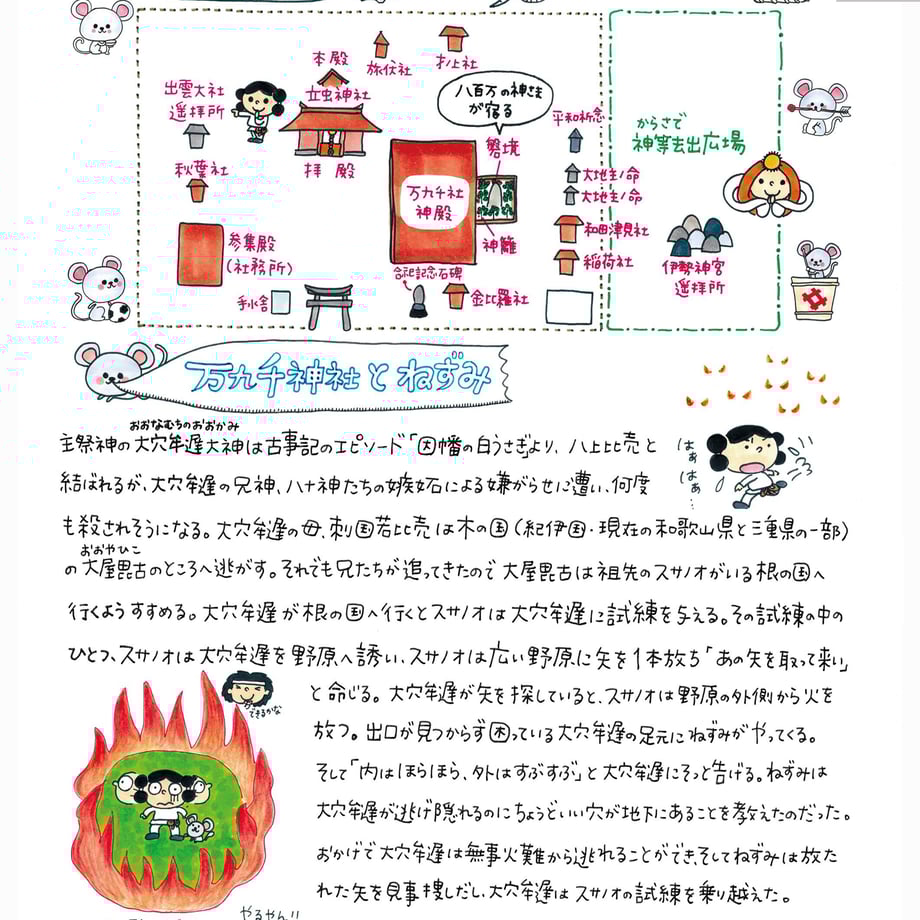 本殿
旅伏社
才ノ上社
出雲大社
遥拝所
立虫神社
八百万の神さま
が宿る
平和祈念
からさで
神等去出広場
秋葉社
拝殿
磐境
大地主ノ命
大地主ノ命
万九千社
神殿
参集殿
(社務所)
神籬
和田津見社
稲荷社
伊勢神宮
遥拝所
合祀記念石碑
金比羅社
手水舎
万九千神社とねずみ
おおなむちのおおかみ
主祭神の大穴牟遅大神は古事記のエピソード「因幡の白うさぎ」より、八上比売と
結ばれるが、大穴牟遅の兄神、八十神たちの嫉妬による嫌がらせに遭い、何度
はぁ
はぁ…
も殺されそうになる。大穴牟遅の母、刺国若比売は木の国(紀伊国・現在の和歌山県と三重県の一部)
おおやひこ
の大屋毘古のところへ逃がす。それでも兄たちが追ってきたので大屋毘古は祖先のスサノオがいる根の国へ
行くようすすめる。大穴牟遅が根の国へ行くとスサノオは大穴牟遅に試練を与える。その試練の中の
ひとつ、スサノオは大穴牟遅を野原へ誘い、スサノオは広い野原に矢を1本放ち「あの矢を取って来い」
と命じる。大穴牟遅が矢を探していると、スサノオは野原の外側から火を
できるかな
放つ。出口が見つからず困っている大穴牟遅の足元にねずみがやってくる。
そして「内はほらほら、外はすぶすぶ」と大穴牟遅にそっと告げる。ねずみは
大穴牟遅が逃げ隠れるのにちょうどいい穴が地下にあることを教えたのだった。
おかげで大穴牟遅は無事火難から逃れることができ、そしてねずみは放た
れた矢を見事捜しだし、大穴牟遅はスサノオの試練を乗り越えた。
やるやん!!